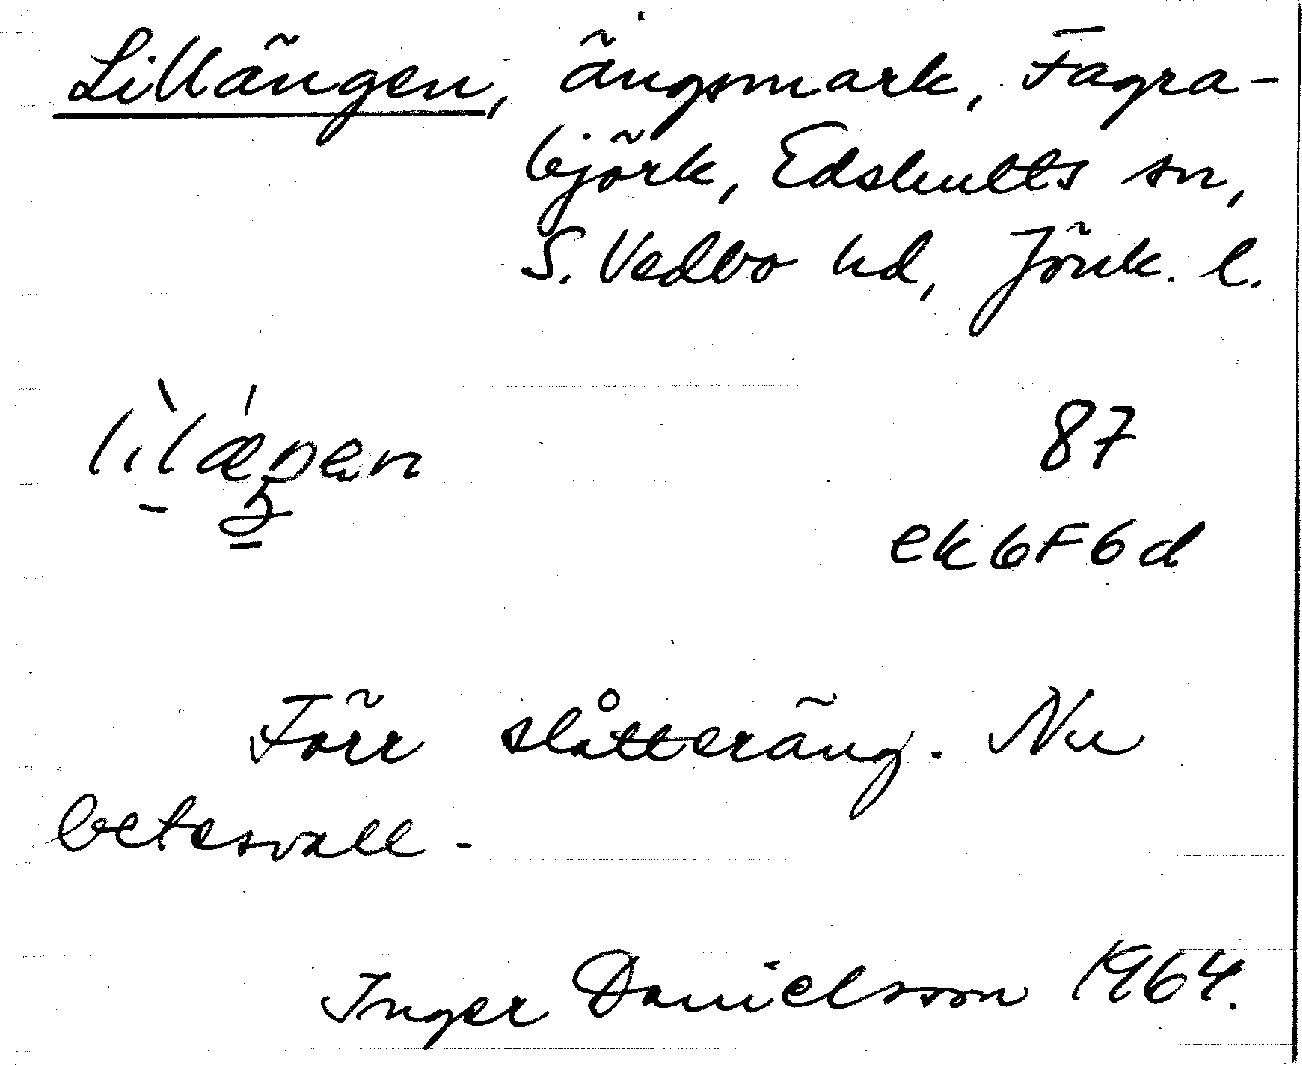 Lillängen, ängsmark, Fagra-
björk, Edshults sn,
S. Vedbo hd, Jönk. l.
87
ek6F6d
Förr slåtteräng. Nu
betesvall.
Inger Danielsson 1964.